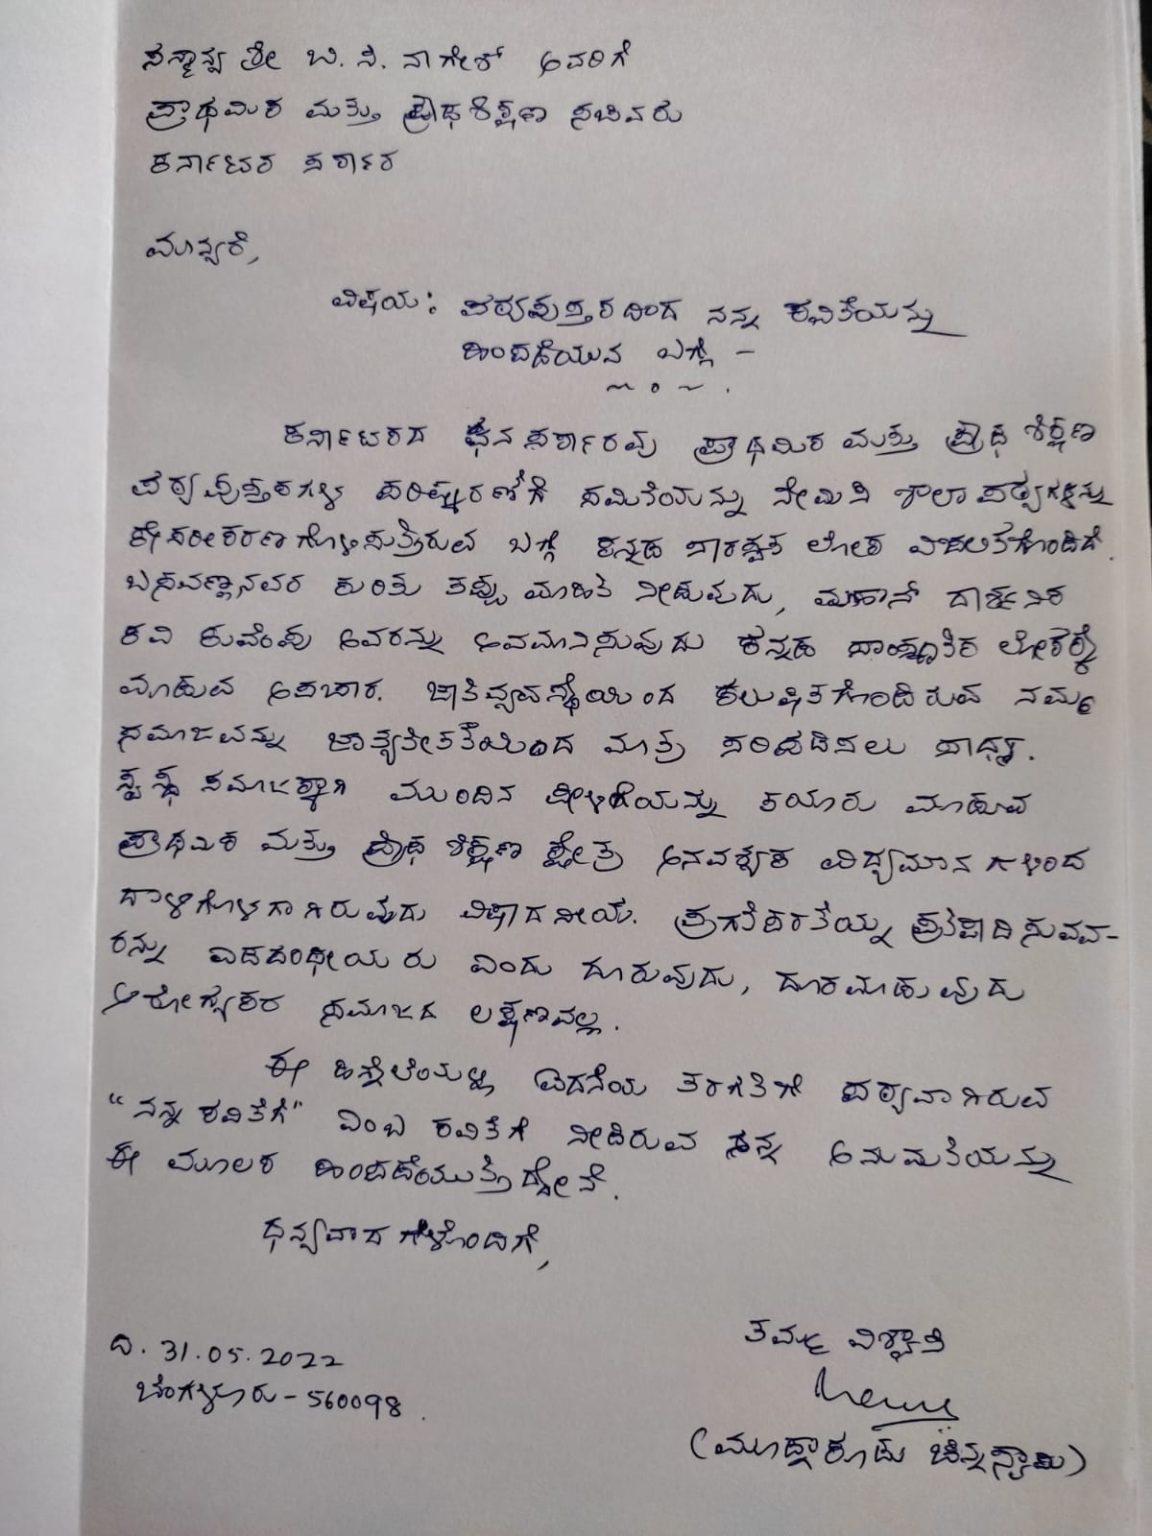 ಸನ್ಮಾನ್ಯ ಶ್ರೀ ಬಿ. ಸಿ. ನಾಗೇಶ್ ಅವರಿಗೆ
ಪ್ರಾಥಮಿಕ ಮತ್ತು ಪ್ರೌಢಶಿಕ್ಷಣ ಸಚಿವರು
ಕರ್ನಾಟಕ ಸರ್ಕಾರ
ಮಾನ್ಯರೆ,
ವಿಷಯ: ಪಠ್ಯಪುಸ್ತಕದಿಂದ ನನ್ನ ಕವಿತೆಯನ್ನು
ಹಿಂಪಡೆಯುವ ಬಗ್ಗೆ –
~ ० ~ .
ಕರ್ನಾಟಕದ ಘನ ಸರ್ಕಾರವು ಪ್ರಾಥಮಿಕ ಮತ್ತು ಪ್ರೌಢ ಶಿಕ್ಷಣ
ಪಠ್ಯಪುಸ್ತಕಗಳ ಪರಿಷ್ಕರಣೆಗೆ ಸಮಿತಿಯನ್ನು ನೇಮಿಸಿ ಶಾಲಾ ಪಠ್ಯಗಳನ್ನು
ಕೇಸರೀಕರಣಗೊಳಿಸುತ್ತಿರುವ ಬಗ್ಗೆ ಕನ್ನಡ ಸಾರಸ್ವತ ಲೋಕ ವಿಚಲಿತಗೊಂಡಿದೆ.
ಬಸವಣ್ಣನವರ ಕುರಿತು ತಪ್ಪು ಮಾಹಿತಿ ನೀಡುವುದು, ಮಹಾನ್ ದಾರ್ಶನಿಕ
ಕವಿ ಕುವೆಂಪು ಅವರನ್ನು ಅವಮಾನಿಸುವುದು ಕನ್ನಡ ಸಾಂಸ್ಕೃತಿಕ ಲೋಕಕ್ಕೆ
ಮಾಡುವ ಅಪಚಾರ. ಜಾತಿವ್ಯವಸ್ಥೆಯಿಂದ ಕಲುಷಿತಗೊಂಡಿರುವ ನಮ್ಮ
ಸಮಾಜವನ್ನು ಜಾತ್ಯತೀತತೆಯಿಂದ ಮಾತ್ರ ಸರಿಪಡಿಸಲು ಸಾಧ್ಯ.
ಸ್ವಸ್ಥ ಸಮಾಜಕ್ಕಾಗಿ ಮುಂದಿನ ಪೀಳಿಗೆಯನ್ನು ತಯಾರು ಮಾಡುವ
ಪ್ರಾಥಮಿಕ ಮತ್ತು ಪ್ರೌಢ ಶಿಕ್ಷಣ ಕ್ಷೇತ್ರ ಅನವಶ್ಯಕ ವಿದ್ಯಮಾನಗಳಿಂದ
ದಾಳಿಗೊಳಗಾಗಿರುವುದು ವಿಷಾದನೀಯ. ಪ್ರಗತಿಪರತೆಯನ್ನು ಪ್ರತಿಪಾದಿಸುವವ-
ರನ್ನು ಎಡಪಂಥೀಯರು ಎಂದು ದೂರುವುದು, ದೂರಮಾಡುವುದು
ಆರೋಗ್ಯಕರ ಸಮಾಜದ ಲಕ್ಷಣವಲ್ಲ.
ಈ ಹಿನ್ನೆಲೆಯಲ್ಲಿ ಐದನೆಯ ತರಗತಿಗೆ ಪಠ್ಯವಾಗಿರುವ
“ನನ್ನ ಕವಿತೆಗೆ” ಎಂಬ ಕವಿತೆಗೆ ನೀಡಿರುವ ನನ್ನ ಅನುಮತಿಯನ್ನು
ಈ ಮೂಲಕ ಹಿಂಪಡೆಯುತ್ತಿದ್ದೇನೆ.
ಧನ್ಯವಾದಗಳೊಂದಿಗೆ,
ದಿ. 31.05.2022
ಬೆಂಗಳೂರು – 560098.
ತಮ್ಮ ವಿಶ್ವಾಸಿ
(ಮೂಡ್ನಾಕೂಡು ಚಿನ್ನಸ್ವಾಮಿ)